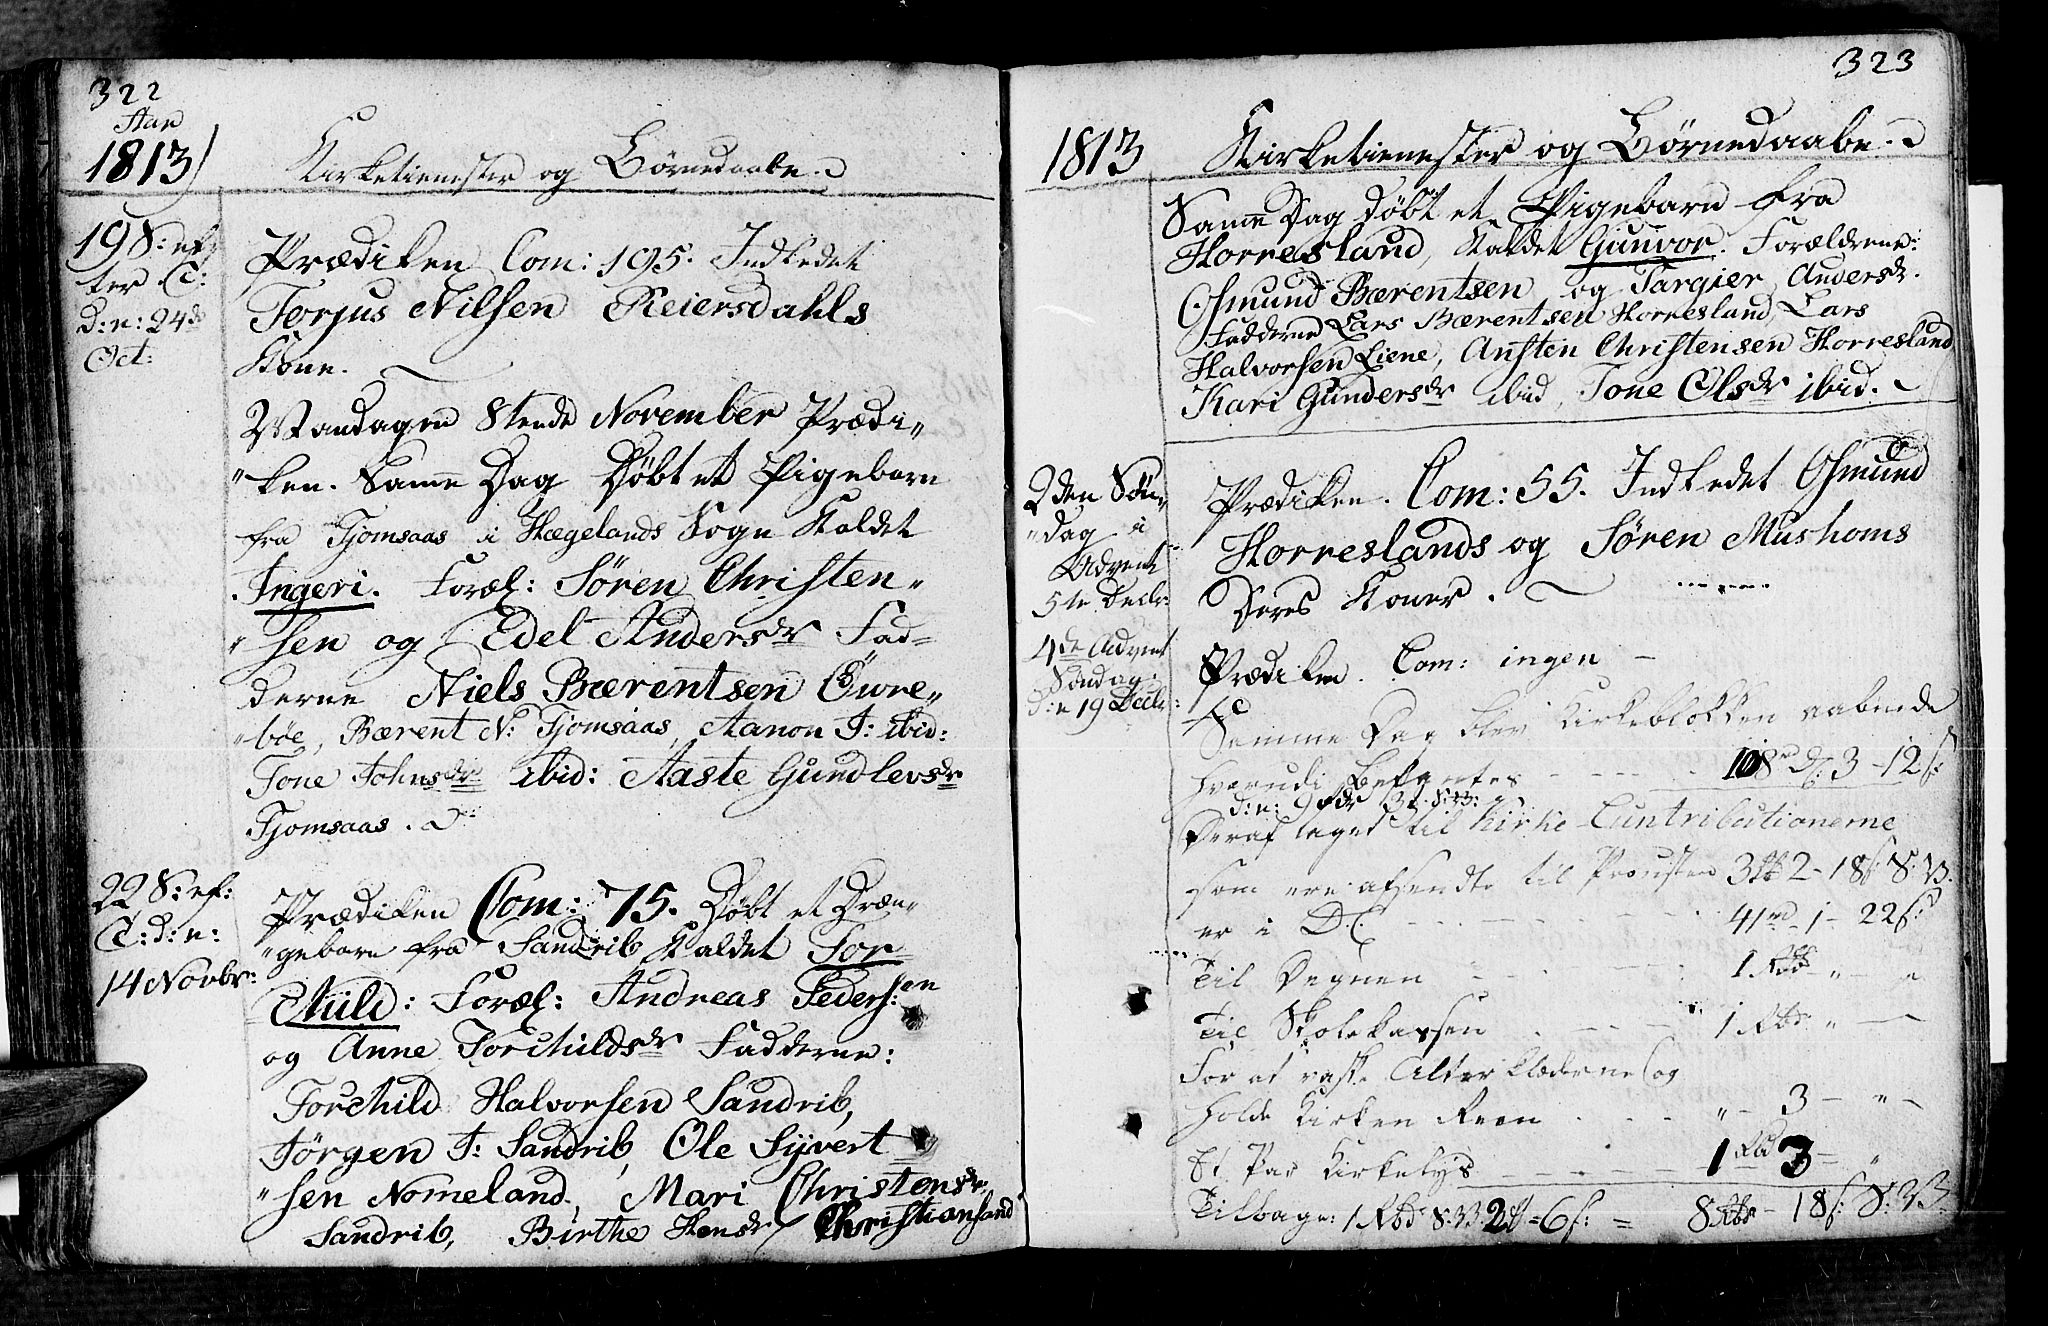 322
Aar
1813
Kirketienester og Börnedaabe.
19 S: ef
ter T:
d: n: 24de
Oct:
Prædiken Com: 195. Indledet
Torjus Nilsen Reiersdahls
Kone.
Mandagen 8tende November Prædi„
„ken. Samme Dag Döbt et Pigebarn
fra Tjomsaas i Hægelands Sogn Kaldet
Ingeri. Foræl: Sören Christen„
„sen og Edel Andersdr Fad=
derne Niels Bærentsen Öwre„
„böe, Bærent N: Tjomsaas, Aanon J: ibid:
Tone Johnsdr ibid: Aaste Gundlevsdr
Tjomsaas.
22 S: ef:
T: d: n:
14 Novbr:
Prædiken Com: 75. Döbt et Dren„
„gebarn fra Sandrib Kaldet Tor=
Child: Foræl: Andreas Pedersen
og Anne Torchildsdr Fadderne:
Torchild Halvorsen Sandrib,
Jörgen J: Sandrib, Ole Sijvert
„sen Nomeland, Mari Christensdr
Sandrib, Birthe Hensdr Christiansand
323
1813
Kirketienester og Börnedaabe.
Samme Dag döbt et Pigebarn fra
Horresland, Kaldet Gunvor. Forældrene:
Osmund Bærentsen og Targier Andersdr.
Fadderne Lars Bærentsen Horresland, Lars
Halvorsen Liene, Ansten Christensen Horresland
Kari Gundersdr ibid, Tone Olsdr ibid.
2den Sön„
„dag i
Advent
5te Decbr:
Prædiken. Com: 55. Indledet Osmund
Horreslands og Sören Mushoms
Deres Koner.
4de Advent
Söndag:
d: n 19 Decbr:
Prædiken. Com: ingen
Samme Dag blev Kirkeblokken aabnede
hvorudi befantes 108 rd 3 - 12 s:
Deraf taget til Kirke Contributionerne
som ere afsendte til Prousten 3 2 - 18 s S: V.
er i D. C. 41 rd - 1 - 22 s:
Til Degnen 1 Rbd „ -
Til Skolekassen 1 Rbd „ -
For at vaske Alterklæderne og
holde Kirken Reen „ - 3 - „ -
Et Par Kirkelys 1 Rbd 3 - „
Tilbage: 1 Rbd S: V. 2 = 6 s: = 8 Rbd - 18 s: S: V.